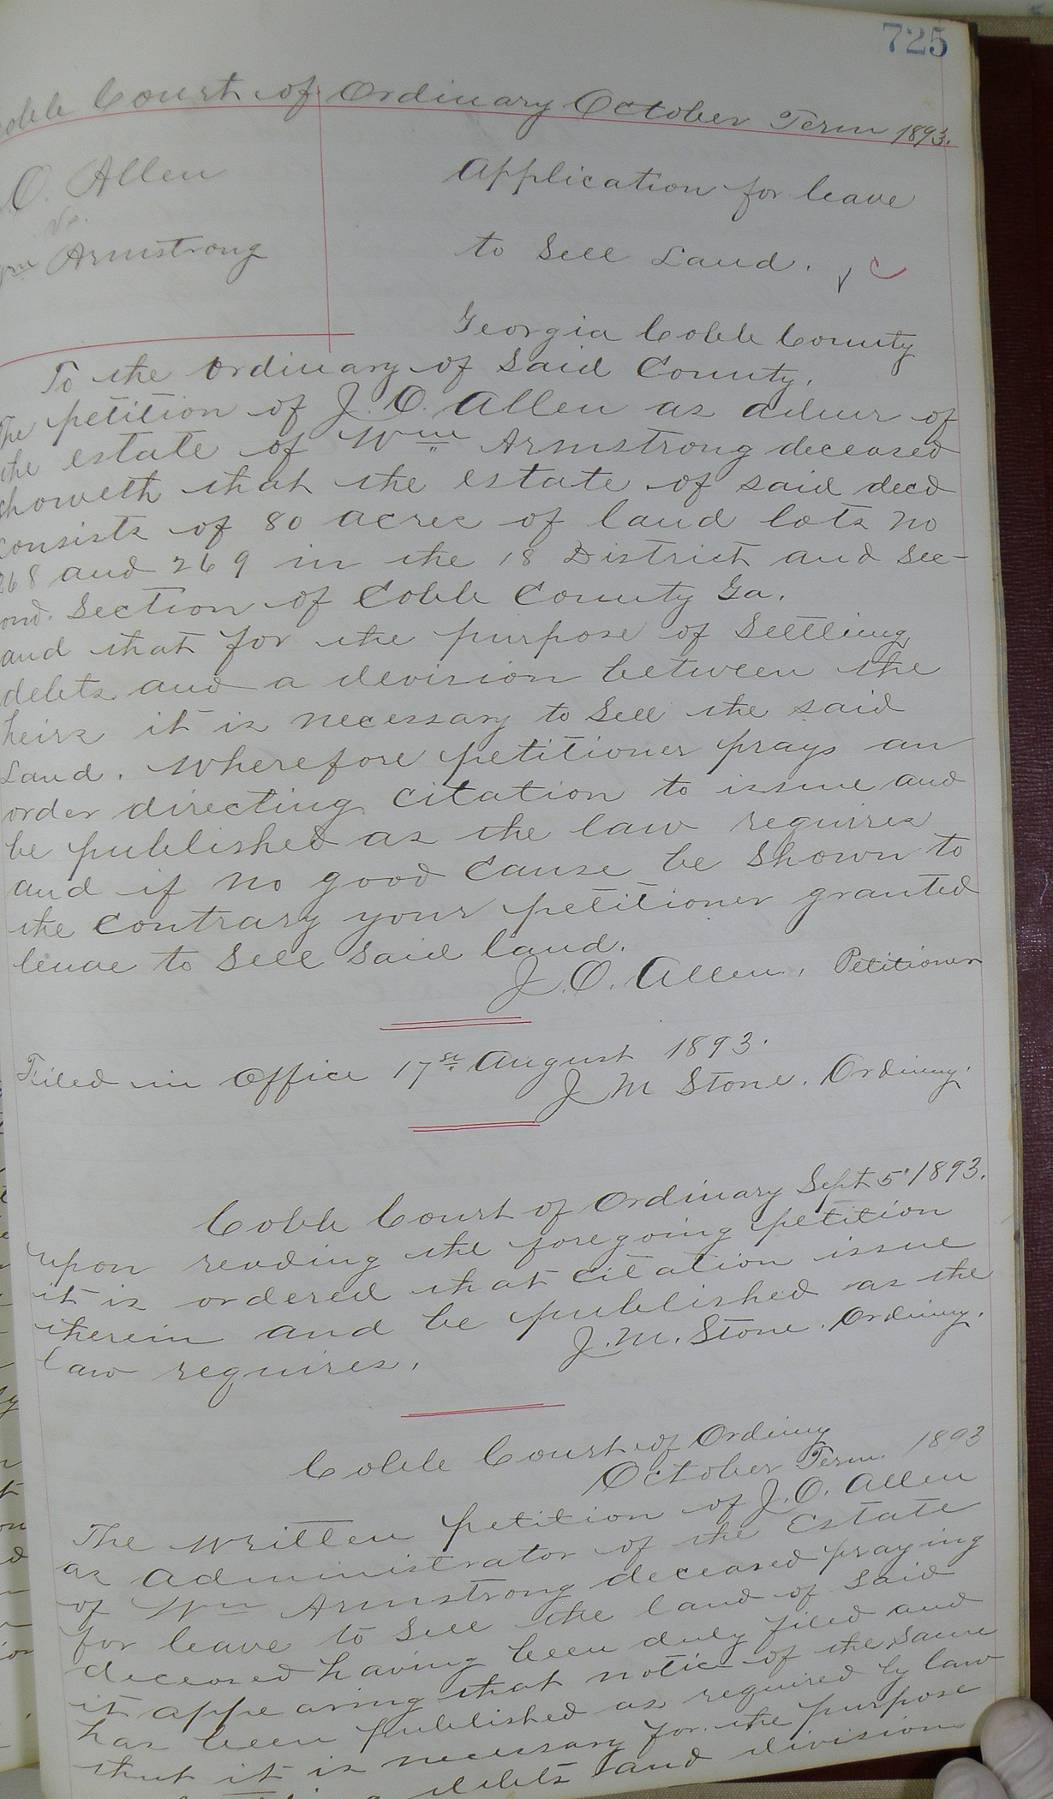 725
Cobb Court of Ordinary October Term 1893.
J. O. Allen
vs.
Wm Armstrong
Application for leave
to Sell Land.
Georgia Cobb County
To the Ordinary of Said County.
The petition of J. O. Allen as admr of
the estate of Wm Armstrong deceased
showeth that the estate of said decd
consists of 80 acres of land lots No
268 and 269 in the 18 District and Sec-
ond Section of Cobb County Ga.
and that for the purpose of Settling
debts and a devision between the
heirs it is necessary to Sell the said
Land. Wherefore petitioner prays an
order directing citation to issue and
be published as the law requires
and if no good Cause be Shown to
the Contrary your petitioner granted
leave to Sell Said land.
J. O. Allen, Petitioner
Filed in Office 17st August 1893.
J M Stone. Ordinary.
Cobb Court of Ordinary Sept 5" 1893.
upon reading the foregoing petition
it is ordered that citation issue
therein and be published as the
law requires.
J. M. Stone. Ordinary.
Cobb Court of Ordinry
October Term 1893
The written petition of J. O. Allen
as administrator of the Estate
of Wm Armstrong deceased praying
for leave to Sell the land of Said
deceased having been duly filed and
it appearing that notice of the Same
has been published as required by law
that it is necessary for the purpose
debts and division